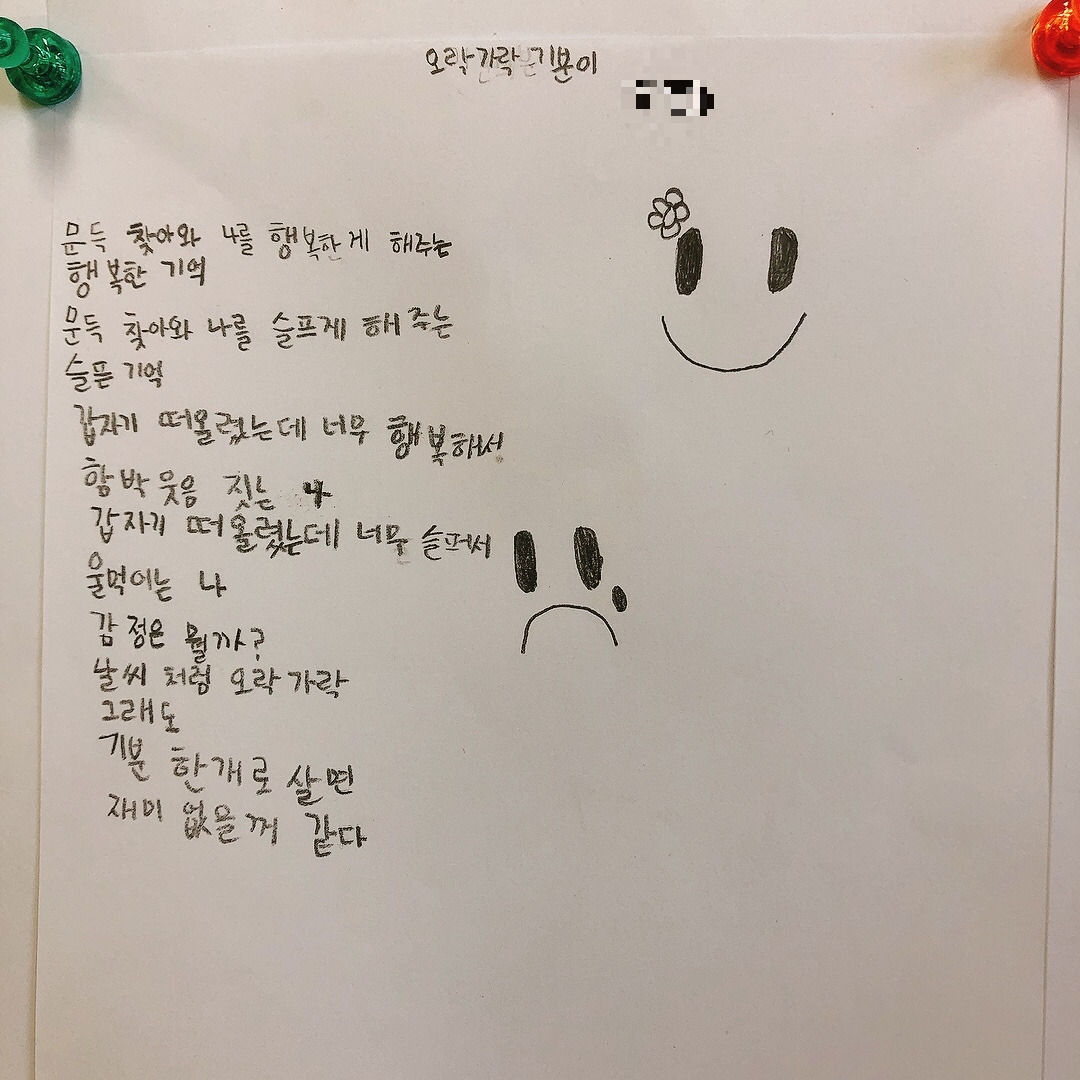 오락가락 기분이
문득 찾아와 나를 행복한게 해주는
행복한 기억
문득 찾아와 나를 슬프게 해주는
슬픈 기억
갑자기 떠올렸는데 너무 행복해서
함박 웃음 짓는 나
갑자기 떠올렸는데 너무 슬퍼서
울먹이는 나
감정은 뭘까?
날씨 처럼 오락가락
그래도
기분 한개로 살면
재미 없을꺼 같다